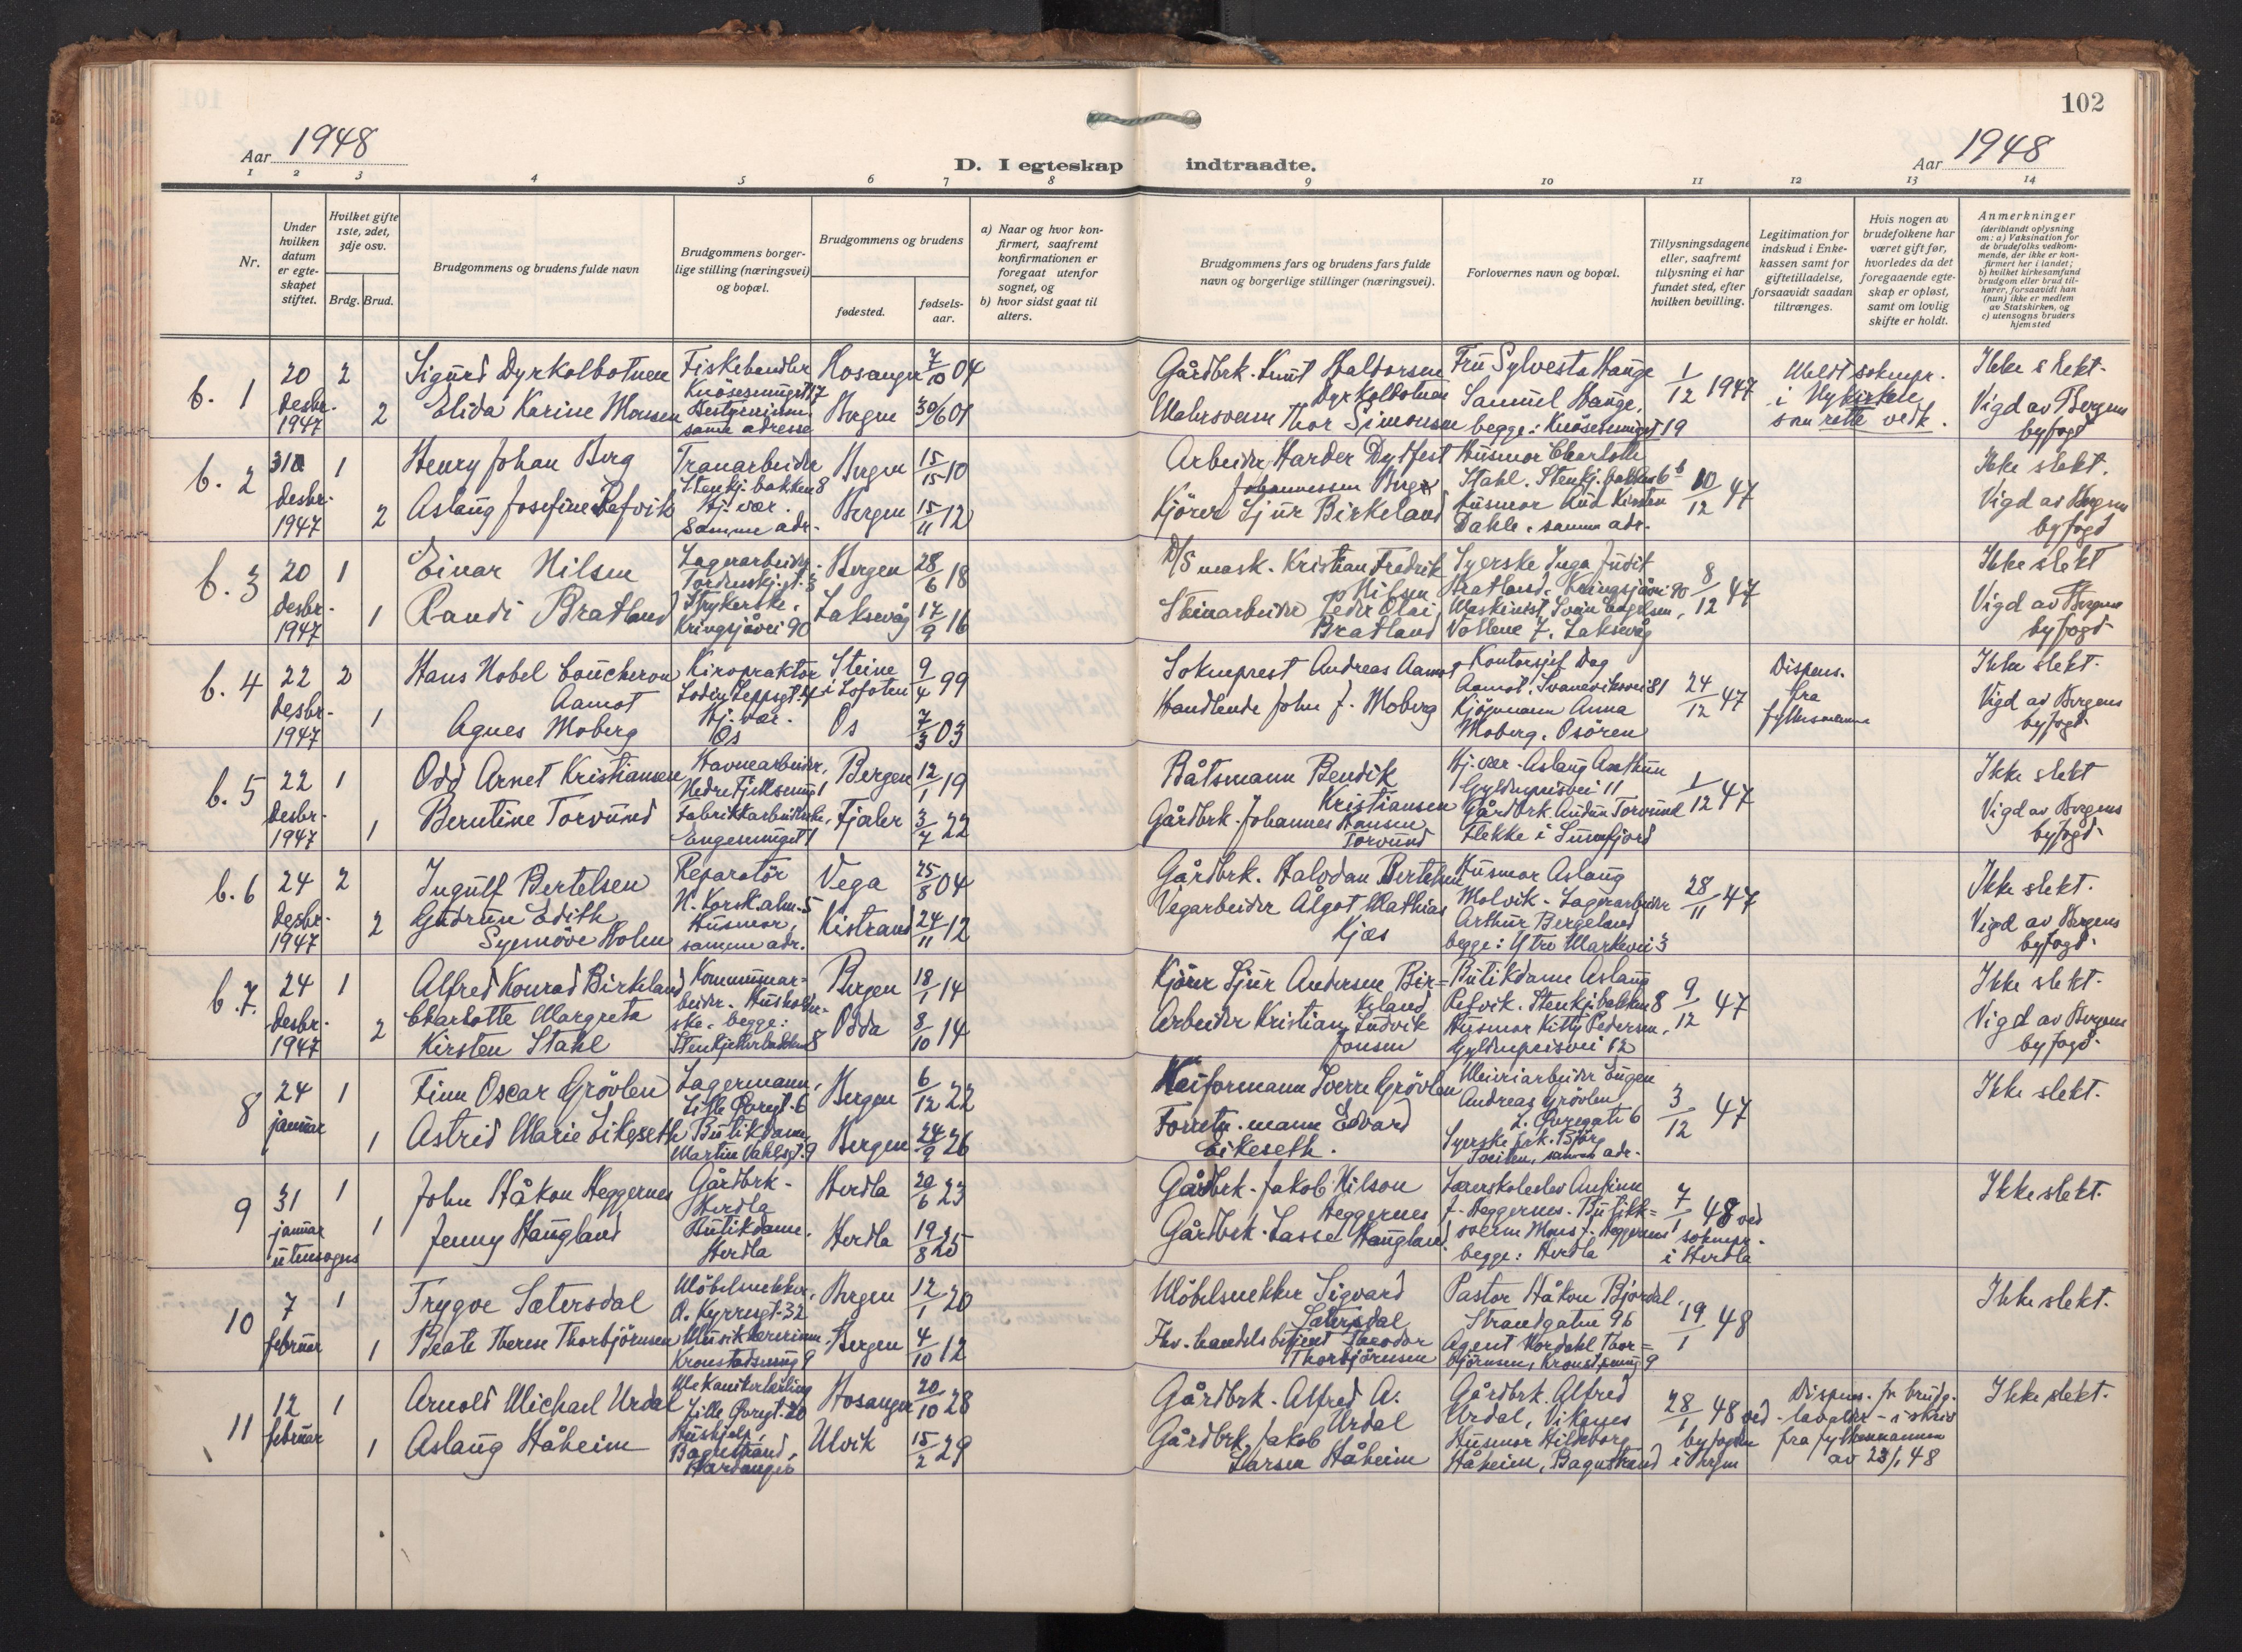 102
Aar 1948
D. I egteskap indtraadte.
Aar 1948
1 2 3 4 5 6 7 8 9 10 11 12 13 14
Nr.
Under hvilken datum er egteskapet stiftet.
Hvilket gifte 1ste, 2det, 3dje osv.
Brdg. Brud.
Brudgommens og brudens fulde navn
Brudgommens borgerlige stilling (næringsvei) og bopæl.
Brudgommens og brudens
fødested.
fødselsaar.
a) Naar og hvor konfirmert, saafremt konfirmationen er foregaat utenfor sognet, og
b) hvor sidst gaat til alters.
Brudgommens fars og brudens fars fulde navn og borgerlige stillinger (næringsvei).
Forlovernes navn og bopæl.
Tillysningsdagene eller, saafremt tillysning ei har fundet sted, efter hvilken bevilling.
Legitimation for indskud i Enkekassen samt for giftetilladelse, forsaavidt saadan tiltrænges.
Hvis nogen av brudefolkene har været gift før, hvorledes da det foregaaende egteskap er opløst, samt om lovlig skifte er holdt.
Anmerkninger
(deriblandt oplysning om: a) Vaksination for de brudefolks vedkommende, der ikke er konfirmert her i landet; b) hvilket kirkesamfund brudgom eller brud tilhører, forsaavidt han (hun) ikke er medlem av Statskirken, og c) utensogns bruders hjemsted
b. 1 20 desbr. 1947 2 Sigurd Dyrkolbotnen Fiskehandler Hosanger 7/10 04 Gårdbrk. Knut Haldorsen Dyrkolbotnen Fru Sylvesta Hauge 1/12 1947 Ikke slekt.
2 Elida Karine Monsen samme adresse Bergen 30/6 01 Thor Simonsen Samuel Hauge, begge: Knösesmuget 19 i Nykirken som rette vedk. Vigd av Bergens byfogd
b. 2 31 desbr. 1947 1 Henry Johan Berg Tranarbeider Stenkj.bakken 8 Bergen 15/15 10 Arbeider Harder Dydfest Johannessen Berg Husmor Charlotte Stahl. Stenkj.bakken 6b 10/12 47 Ikke slekt.
2 Aslaug Josefine Refvik Hj. vær. Samme adr. Bergen 15/11 12 Kjörer Sjur Birkeland Husmor Aud Kirsten Dahle, samme adr. Vigd av Bergens byfogd
b. 3 20 desbr. 1947 1 Einar Nilsen Lagerarbeider. Tordenskj.gt. 3 Bergen 28/6 18 D/S mask. Kristian Fredrik Nilsen Syerske Inga Judit Bratland, Kringsjåvei 90 8/12 47 Ikke slekt
1 Randi Bratland Strykerske. Kringsjåvei 90 Laksevåg 17/9 16 Steinarbeider Peder Olai Bratland Vollene 7, Laksevåg Vigd av Bergens byfogd
b. 4 22 desbr. 1947 2 Hans Nobel Coucheron Aamot Kiropraktor Steine i Lofoten 9/4 99 Sokneprest Andreas Aamot Kontorsjef Dag Aamot, Svaneviksvei 81 24/12 47 Dispens. fra fylkesmannen Ikke slekt.
1 Agnes Moberg Hj. vær. Os Os 7/3 03 Handlende John J. Moberg Kjöpmann Anna Moberg, Osören Vigd av Bergens byfogd
b. 5 22 desbr. 1947 1 Odd Arnet Kristiansen Havnearbeider, Nedre Fjellsmug 1 Bergen 12/1 19 Båtsmann Bendik Kristiansen Hj. vær. Aslaug Gyldenprisvei 11 1/12 47 Ikke slekt
1 Berntine Torvund Fabrikkarbeiderske, Engesmuget 1 Fjaler 3/7 22 Gårdbrk. Johannes Hansen Torvund Gårdbrk. Andun Torvund Flekke i Sunnfjord Vigd av Bergens byfogd
b. 6 24 desbr. 1947 2 Ingulf Bertelsen Reparatör N. Korsk.alm. 5 Vega 25/8 04 Gårdbrk. Halvdan Bertelsen Husmor Aslaug Molvik. Lagerarbeider 28/11 47 Ikke slekt.
2 Gudrun Edith Synnöve Holm Husmor, samme adr. Kistrand 24/11 12 Vegarbeider Algot Mathias Kjæs Arthur Bergeland begge: Ytre Markevei 3 Vigd av Bergens byfogd
b. 7. 24 desbr. 1947 1 Alfred Konrad Birkeland Kommunearbeider. Bergen 18/1 14 Kjörer Sjur Andersen Birkeland Butikdame Aslaug Refvik. Stenkj.bakken 8 9/12 47 Ikke slekt.
2 Charlotte Margreta Kirsten Stahl begge: Stenkjellerbakken 8 Odda 8/10 14 Arbeider Kristian Ludvik Jonsen Husmor Kitty Pedersen, Gyldenprisvei 12 Vigd av Bergens byfogd
8 24 januar 1 Finn Oscar Grövlen Lagermann, Lille Övregt. 6 Bergen 6/12 22 Kaiformann Sverre Grövlen Meieriarbeider Eugen Andreas Grövlen L. Övregate 6 3/12 47 Ikke slekt.
1 Astrid Marie Eikeseth Butikdame Martin Vahlsgt. 9 Bergen 24/9 26 Forretn.mann Edvard Eikeseth. Syerske frk. Björg samme adr.
9 31 januar utensogns 1 John Håkon Heggernes Gårdbrk. Herdla Herdla 20/6 23 Gårdbrk. Jakob Nilson Heggernes Lærerskoleelev Anfinn J. Heggernes. 7/1 48 ved soknepr. i Herdla Ikke slekt.
1 Jenny Haugland Butikdame. Herdla Herdla 19/8 25 Gårdbrk. Lasse Haugland. Butikksvenn Mons J. Heggernes begge: Herdla
10 7 februar 1 Trygve Sætersdal Möbelsnekker, O. Kyrresgt. 32 Bergen 12/1 20 Möbelsnekker Sigvard Sætersdal Pastor Håkon Bjordal, Strandgaten 96 19/1 48 Ikke slekt.
1 Beate Therese Thorbjörnsen Kronstadsmug 9 Bergen 4/10 12 Fhv. handelsbetjent Theodor Thorbjörnsen Agent Nordahl Thorbjörnsen, Kronst.smug 9
11 12 februar 1 Arnold Michael Urdal Mekanikerlærling Lille Övregt. 20 Hosanger 20/10 28 Gårdbrk. Alfred A. Urdal Gårdbrk. Alfred Urdal, Vikanes 28/1 48 ved byfogden i Bergen Dispens. fra fylkesmannen av 23/1 48 Ikke slekt.
1 Aslaug Håheim Hushjelp, Bagnstrand, Hardanger Ulvik 15/2 29 Gårdbrk. Jakob Larsen Håheim Husmor Hildeborg Håheim, Bagnstrand